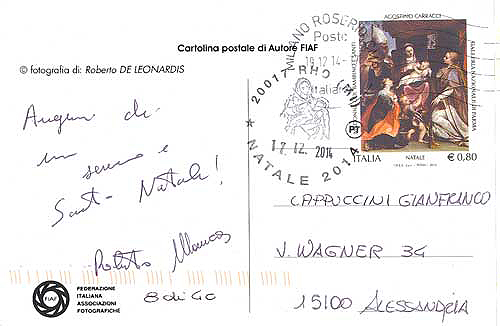 Cartolina postale di Autore FIAF
© fotografia di: Roberto DE LEONARDIS
Auguri di
un sereno e
Santo Natale!
Roberto
FIAF
FEDERAZIONE
ITALIANA
ASSOCIAZIONI
FOTOGRAFICHE
MILANO ROSERIO
Poste
19.12.14
Italiane
20017 RHO (MI)
17.12.2014
NATALE 2014
PT
AGOSTINO CARRACCI
GALLERIA NAZIONALE DI PARMA
ITALIA NATALE € 0,80
CAPPUCCINI GIANFRANCO
V. WAGNER 34
15100 ALESSANDRIA